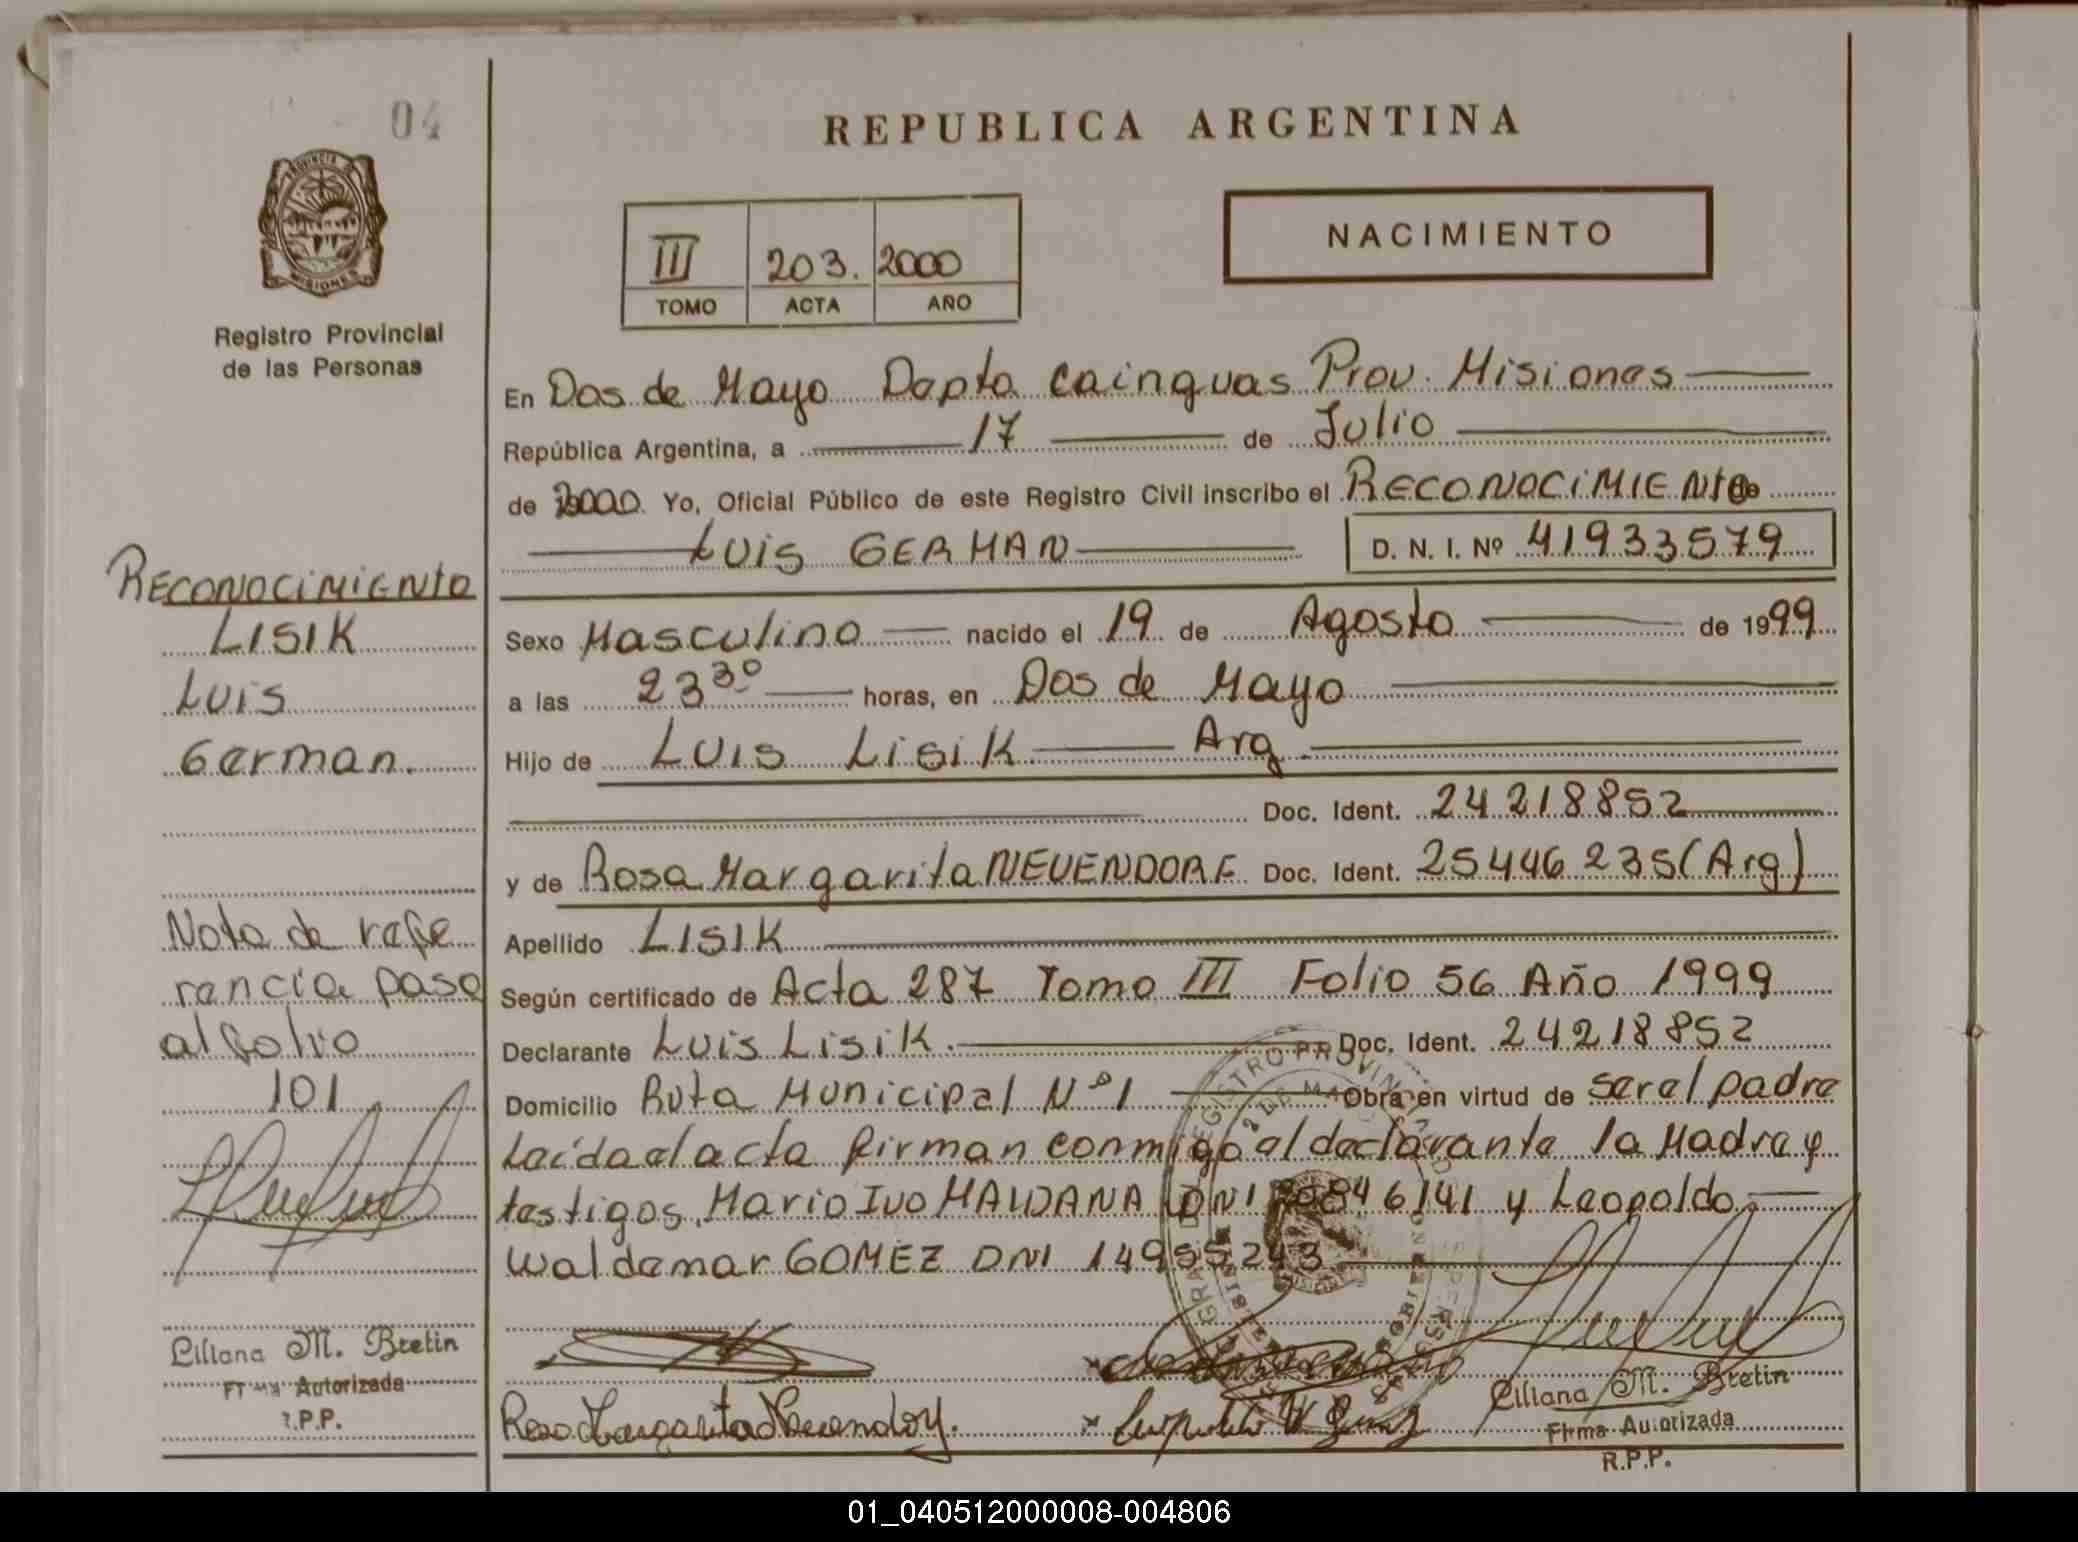 04
PROVINCIA DE
MISIONES
Registro Provincial
de las Personas
RECONOCIMIENTO
LISIK
Luis
German.
Nota de refe
rencia pasa
al folio
101
Liliana M. Bretin
Autorizada
R.P.P.
REPUBLICA ARGENTINA
III 203. 2000
TOMO ACTA AÑO
NACIMIENTO
En Dos de Mayo Depto Cainguas Prov. Misiones
República Argentina, a 17 de Julio
de 2000. Yo, Oficial Público de este Registro Civil inscribo el RECONOCIMIENTO de
LUIS GERMAN D. N. I. Nº 41933579
Sexo Masculino nacido el 19 de Agosto de 1999
a las 23 30 horas, en Dos de Mayo
Hijo de Luis Lisik Arg
Doc. Ident. 24218852
y de Rosa Margarita NEUENDORF Doc. Ident. 25446235 (Arg)
Apellido LISIK
Según certificado de Acta 287 Tomo III Folio 56 Año 1999
Declarante Luis Lisik. Doc. Ident. 24218852
Domicilio Ruta Municipal Nº 1 Obra en virtud de ser el padre
Leída el acta firman conmigo el declarante la Madre y
testigos, Mario Ivo DNI y Leopoldo
Waldemar GOMEZ DNI 14955243
Rosa Margarita Neuendorf.
Liliana M. Bretin
Firma Autorizada
R.P.P.
01_040512000008-004806